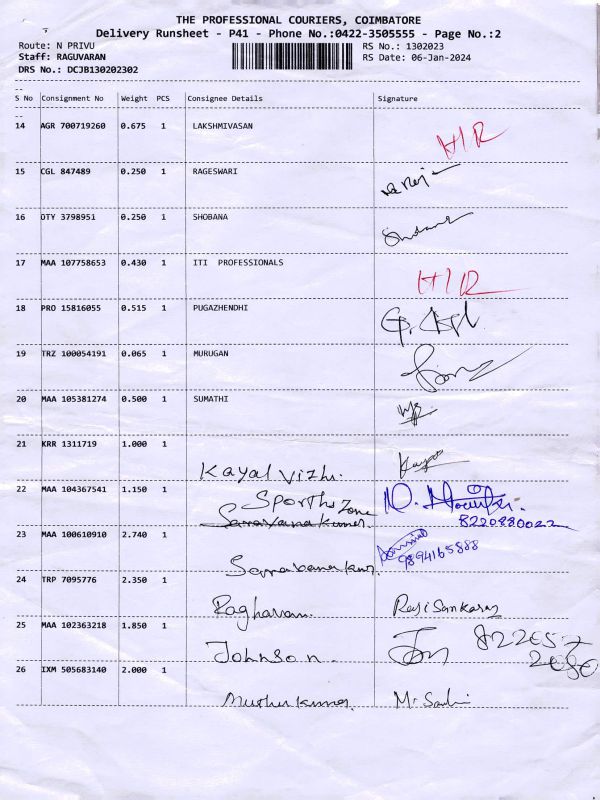 THE PROFESSIONAL COURIERS, COIMBATORE
Delivery Runsheet - P41 - Phone No.:0422-3505555 - Page No.:2
Route: N PRIVU RS No.: 1302023
Staff: RAGUVARAN RS Date: 06-Jan-2024
DRS No.: DCJB130202302
S No Consignment No Weight PCS Consignee Details Signature
14 AGR 700719260 0.675 1 LAKSHMIVASAN
H/R
15 CGL 847489 0.250 1 RAGESWARI
16 OTY 3798951 0.250 1 SHOBANA
17 MAA 107758653 0.430 1 ITI PROFESSIONALS
H/R
18 PRO 15816055 0.515 1 PUGAZHENDHI
19 TRZ 100054191 0.065 1 MURUGAN
20 MAA 105381274 0.500 1 SUMATHI
21 KRR 1311719 1.000 1
Kayal Vizhi.
22 MAA 104367541 1.150 1 Sports Zone
Saravanakumar. 8220880022
23 MAA 100610910 2.740 1
9894165888
Saravanakumar
24 TRP 7095776 2.350 1
Raghavan. Raji Sankaraj
25 MAA 102363218 1.850 1
Johnson.
26 IXM 505683140 2.000 1
Muthu kumar.